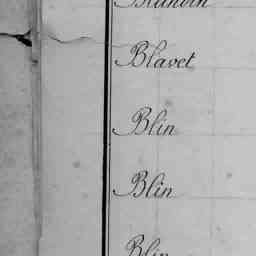 Blavet
Blin
Blin
Blin